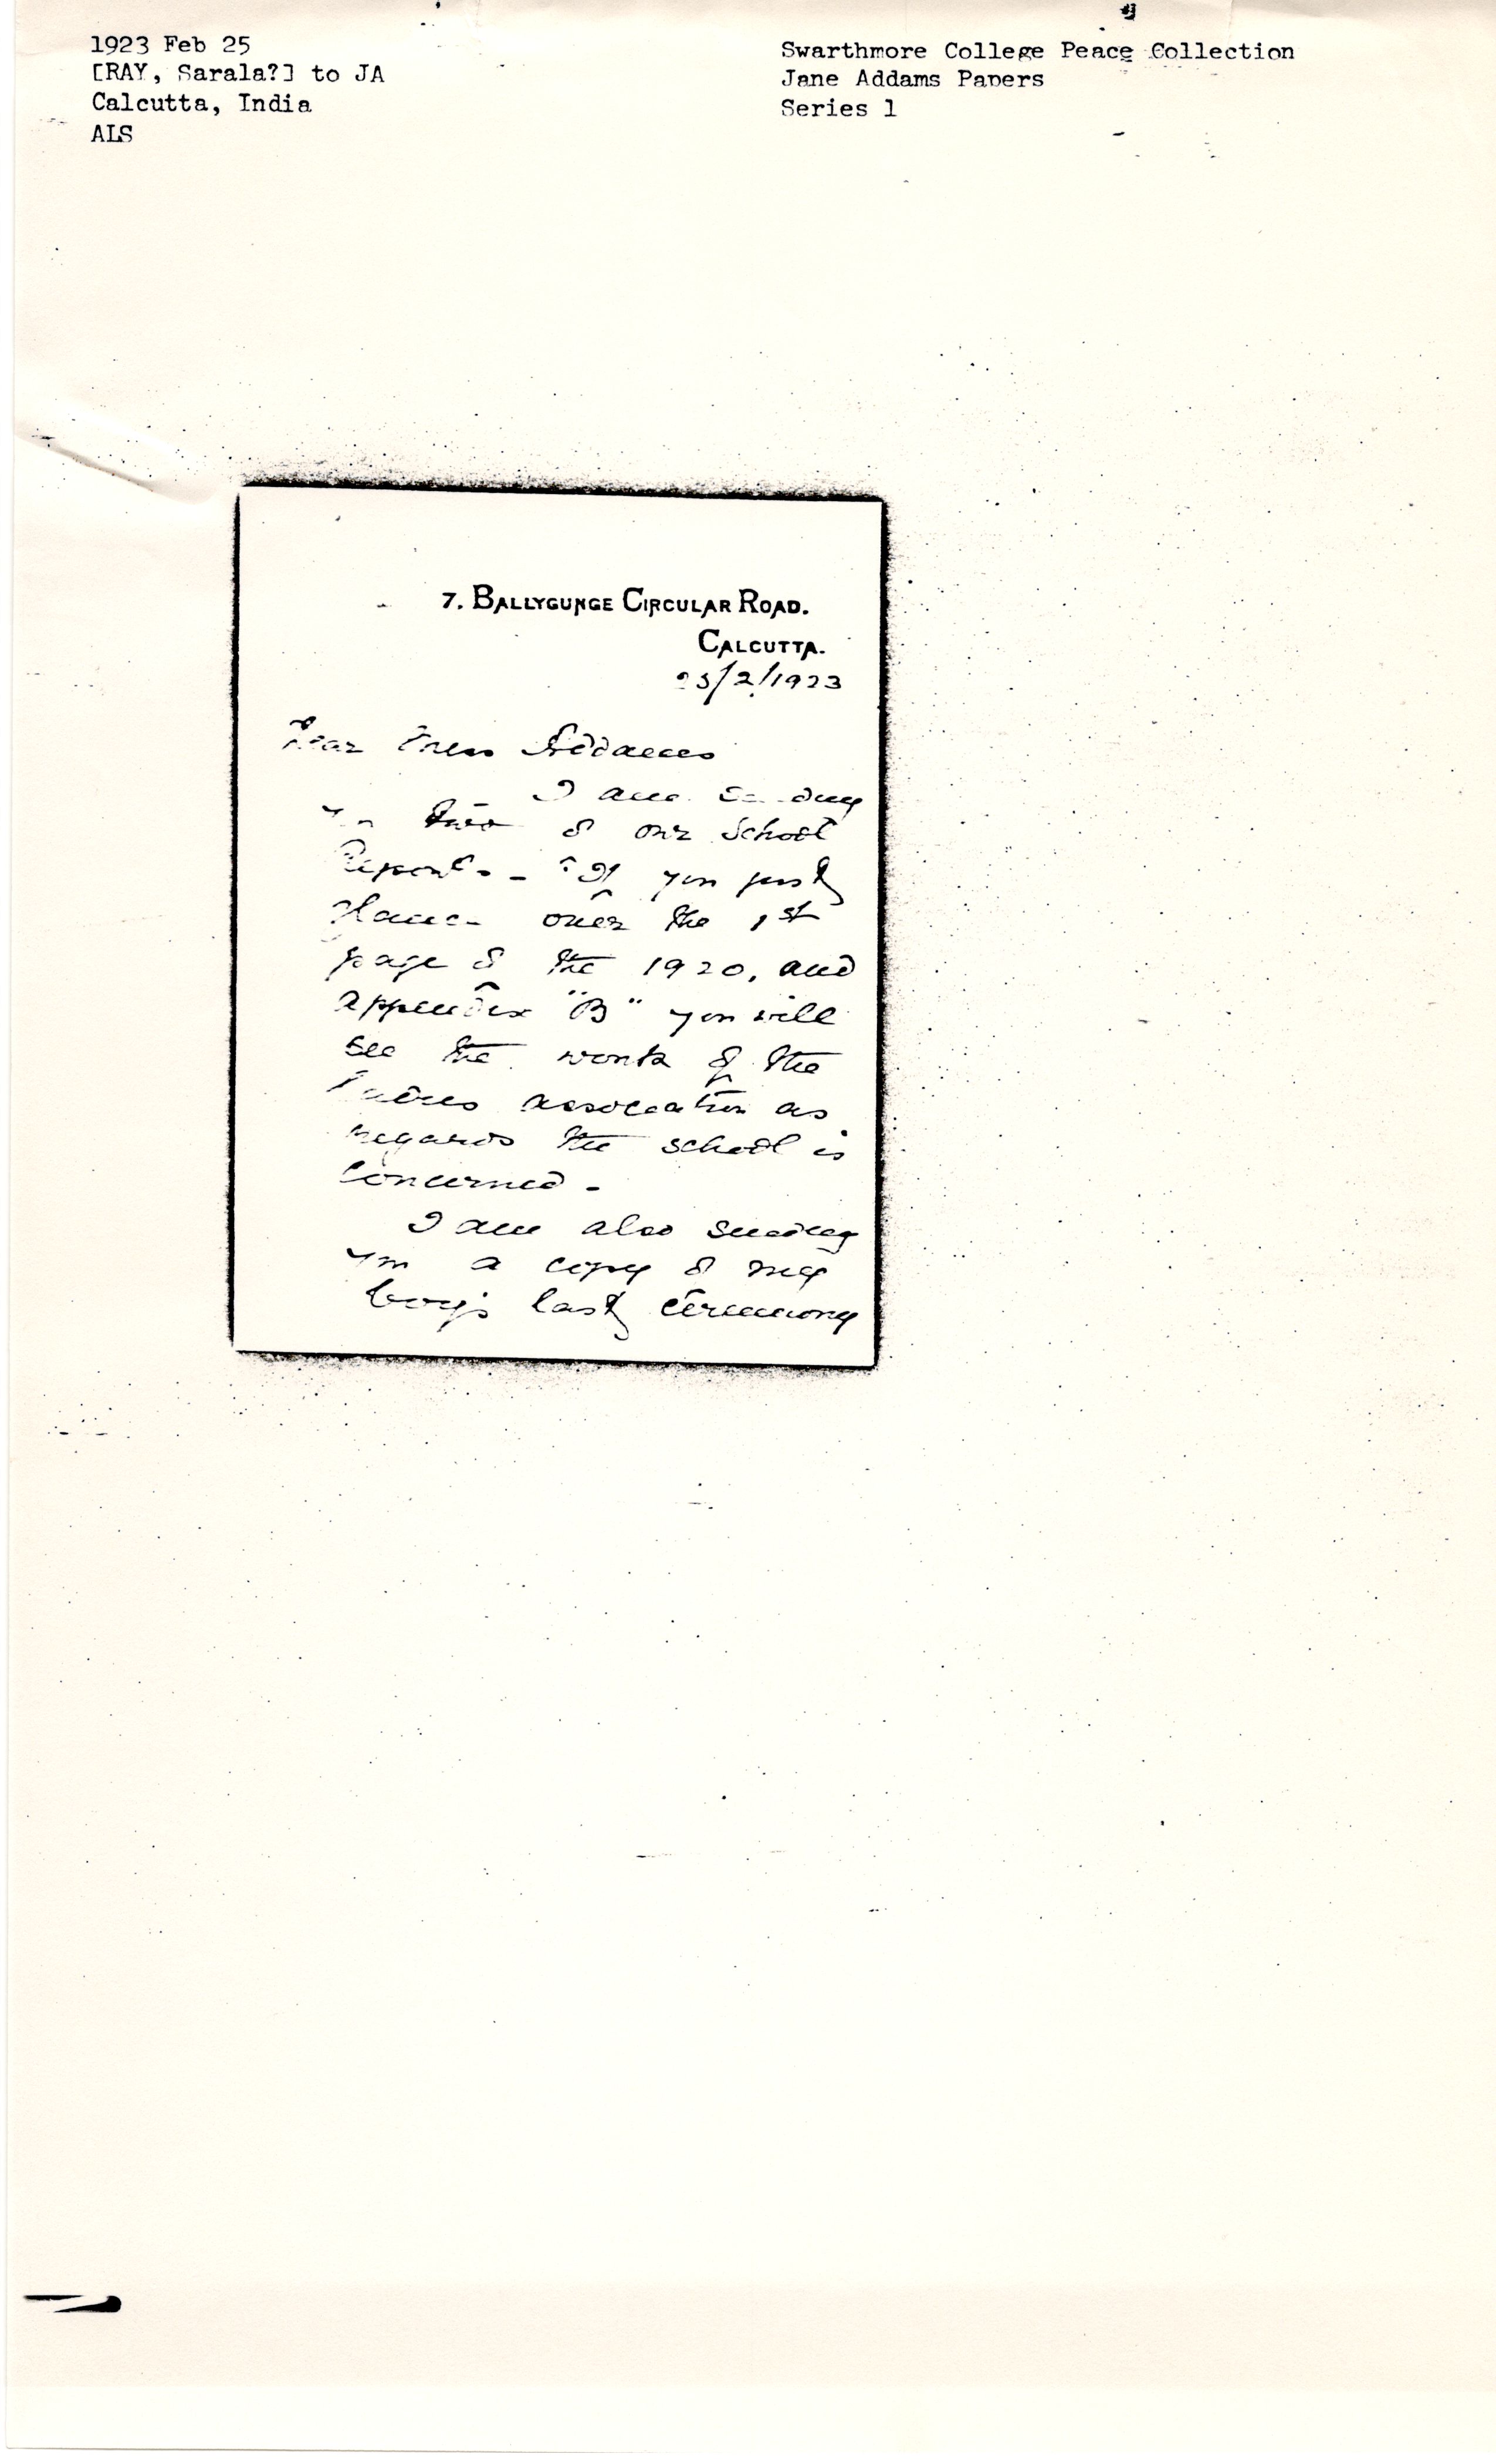 1923 Feb 25
[RAY, Sarala?] to JA
Calcutta, India
ALS
Swarthmore College Peace Collection
Jane Addams Papers
Series 1
7. BALLYGUNGE CIRCULAR ROAD.
CALCUTTA.
25/2/1923
Dear Miss Addams
I am sending
you two of our School
Reports - If you just
glance over the 1st
page of the 1920, and
appendix "B" you will
see the work of the
Ladies association as
regards the school is
concerned -
I am also sending
you a copy of my
boy's last ceremony